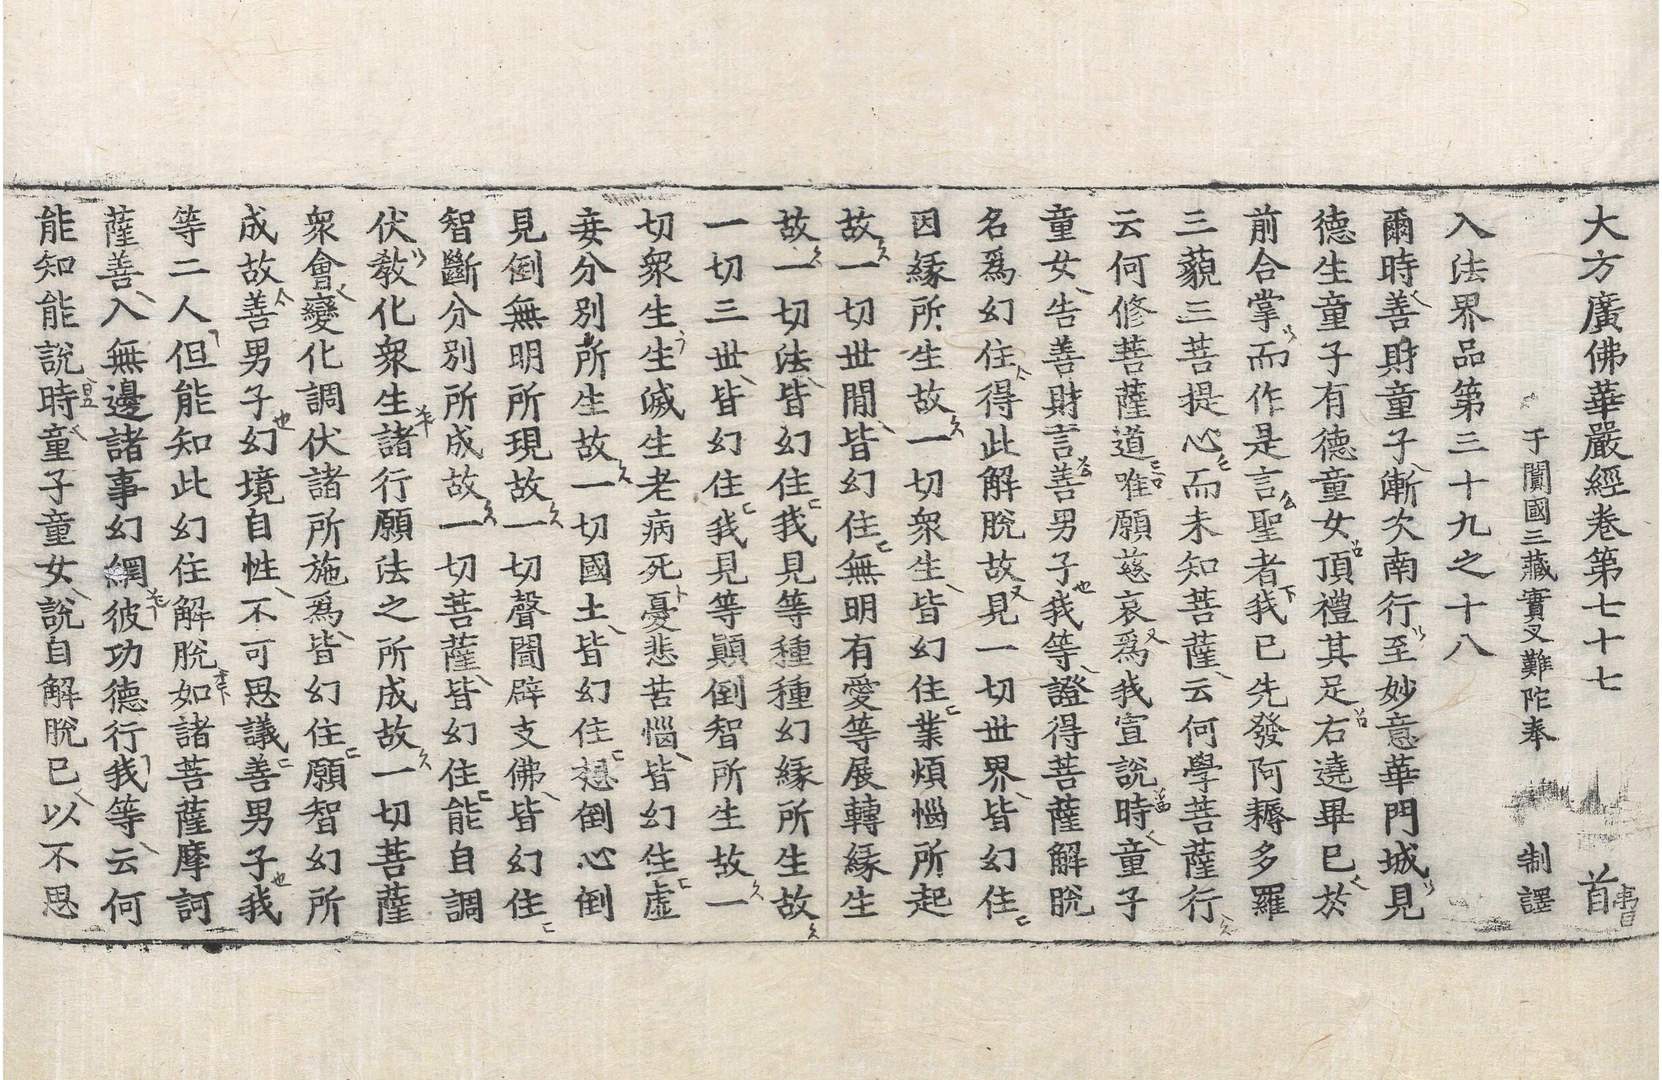 大方廣佛華嚴經卷第七十七 首
于闐國三藏實叉難陁奉 制譯
入法界品第三十九之十八
爾時善財童子漸次南行至妙意華門城見
德生童子有德童女頂禮其足右遶畢已於
前合掌而作是言聖者我已先發阿耨多羅
三藐三菩提心而未知菩薩云何學菩薩行
云何修菩薩道唯願慈哀爲我宣說時童子
童女告善財言善男子我等證得菩薩解脫
名爲幻住得此解脫故見一切世界皆幻住
因緣所生故一切衆生皆幻住業煩惱所起
故一切世間皆幻住無明有愛等展轉緣生
故一切法皆幻住我見等種種幻緣所生故
一切三世皆幻住我見等顚倒智所生故一
切衆生生滅生老病死憂悲苦惱皆幻住虛
妄分別所生故一切國土皆幻住想倒心倒
見倒無明所現故一切聲聞辟支佛皆幻住
智斷分別所成故一切菩薩皆幻住能自調
伏教化衆生諸行願法之所成故一切菩薩
衆會變化調伏諸所施爲皆幻住願智幻所
成故善男子幻境自性不可思議善男子我
等二人但能知此幻住解脫如諸菩薩摩訶
薩善入無邊諸事幻網彼功德行我等云何
能知能說時童子童女說自解脫已以不思